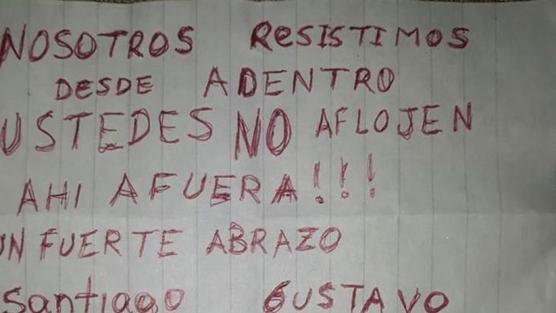 NOSOTROS RESISTIMOS
DESDE ADENTRO
USTEDES NO AFLOJEN
AHI AFUERA!!!
UN FUERTE ABRAZO
Santiago GUSTAVO